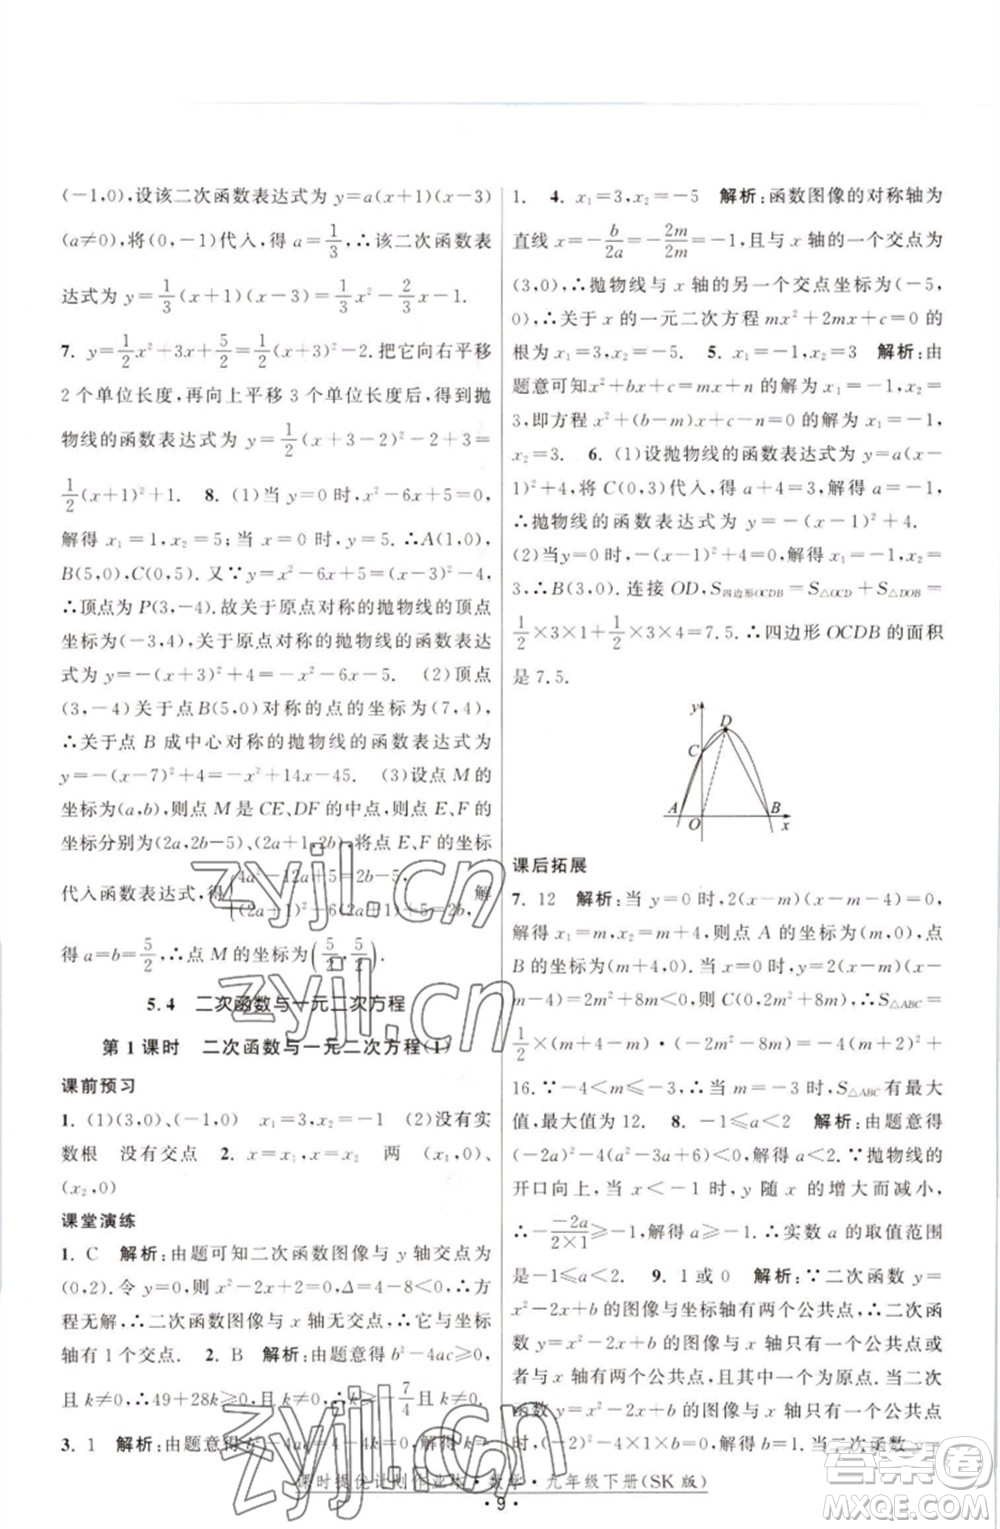 (-1,0),设该二次函数表达式为 y=a(x+1)(x-3)
(a≠0),将(0,-1)代入,得 a=1/3,∴该二次函数表
达式为 y=1/3(x+1)(x-3)=1/3x²-2/3x-1.
7. y=1/2x²+3x+5/2=1/2(x+3)²-2.把它向右平移
2 个单位长度,再向上平移 3 个单位长度后,得到抛
物线的函数表达式为 y=1/2(x+3-2)²-2+3=
1/2(x+1)²+1. 8. (1)当 y=0 时,x²-6x+5=0,
解得 x₁=1,x₂=5;当 x=0 时,y=5;∴A(1,0),
B(5,0),C(0,5).又∵y=x²-6x+5=(x-3)²-4,
∴顶点为 P(3,-4).故关于原点对称的抛物线的顶点
坐标为(-3,4),关于原点对称的抛物线的函数表达
式为 y=-(x+3)²+4=-x²-6x-5. (2)顶点
(3,-4)关于点B(5,0)对称的点的坐标为(7,4),
∴关于点 B 成中心对称的抛物线的函数表达式为
y=-(x-7)²+4=-x²+14x-45. (3)设点 M 的
坐标为(a,b),则点 M 是 CE,DF 的中点,则点E、F 的
坐标分别为(2a,2b-5)、(2a+1,2b),将点 E、F 的坐标
代入函数表达式,得{4a²-12a+5=2b-5, (2a+1)²-6(2a+1)+5=2b, 解
得 a=b=5/2,∴点 M 的坐标为(5/2,5/2).
5.4 二次函数与一元二次方程
第 1 课时 二次函数与一元二次方程(1)
课前预习
1. (1)(3,0)、(-1,0) x₁=3,x₂=-1 (2)没有实
数根 没有交点 2. x=x₁,x=x₂ 两 (x₁,0)、
(x₂,0)
课堂演练
1. C 解析:由题可知二次函数图像与 y 轴交点为
(0,2).令 y=0,则 x²-2x+2=0,Δ=4-8<0,∴方
程无解.∴二次函数图像与 x 轴没有交点.∴与坐标
轴有1个交点. 2. B 解析:由题意得 b²-4ac≥0
且 k≠0,∴49+28k≥0且 k≠0.∴k≥-7/4且 k≠0.
3. 1 解析:由题意得 b²-4ac=4-4k=0,∴k=
1. 4. x₁=3,x₂=-5 解析:函数图像的对称轴为
直线 x=-b/2a=-2m/2m=-1,且与 x 轴的一个交点为
(3,0),∴抛物线与 x 轴的另一个交点坐标为(-5,
0),∴关于 x 的一元二次方程 mx²+2mx+c=0的
根为 x₁=3,x₂=-5. 5. x₁=-1,x₂=3 解析:由
题意可知x²+bx+c=mx+n 的解为 x₁=-1,x₂=
3,即方程 x²+(b-m)x+c-n=0 的解为 x₁=-1,
x₂=3. 6. (1)设抛物线的函数表达式为 y=a(x-
1)²+4,将 C(0,3)代入,得 3=a(0-1)²+4,∴a=-1,
∴抛物线的函数表达式为 y=-(x-1)²+4.
(2)当y=0时,-(x-1)²+4=0,解得 x₁=-1,x₂=
3,∴B(3,0).连接 OD,S四边形OCDB=S△OCD+S△DOB=
1/2×3×1+1/2×3×4=7.5.∴四边形 OCDB 的面积
是 7.5.
y
D
C
A
O
B
x
课后拓展
7. 12 解析:当 y=0 时,2(x-m)(x-m-4)=0,
解得 x₁=m,x₂=m+4,则点 A 的坐标为(m,0),点
B 的坐标为(m+4,0).当 x=0 时,y=2(0-m)(0-
m-4)=2m²+8m,则点 C(0,2m²+8m),∴S△ABC=
16.∵-4<m≤-3,∴当 m=-3 时,S△ABC有最大
值,最大值为 12. 8. -1≤a<2 解析:由题意得
(-2a)²-4(a²+a-2)>0,解得 a<2.∵抛物线的
开口向上,当 x<-1 时,y 随 x 的增大而减小,
∴-(-2a)/(2×1)≥-1,解得 a≥-1,∴实数 a 的取值范围
是-1≤a<2. 9. 1 或 0 解析:∵二次函数 y=
x²-2x+b 的图像与坐标轴有两个公共点,∴二次函
数 y=x²-2x+b 的图像与 x 轴只有一个公共点或
与 x 轴有两个公共点,其中一个为原点.当二次
函数 y=x²-2x+b 的图像与 x 轴只有一个公共点
时,(-2)²-4×1×b=0,∴b=1;当二次函数 y=
课时提优计划作业本·数学·九年级下册(SK 版)
·9·
zyjl.cn
zyjl.cn
zyjl.cn
作业精灵
答案圈
MXQE.COM